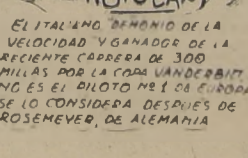 EL ITALIANO DEMONIO DE LA
VELOCIDAD Y GANADOR DE LA
RECIENTE CARRERA DE 300
MILLAS POR LA COPA VANDERBILT,
NO ES EL PILOTO Nº 1 DE EUROPA
SE LO CONSIDERA DESPUES DE
ROSEMEYER, DE ALEMANIA